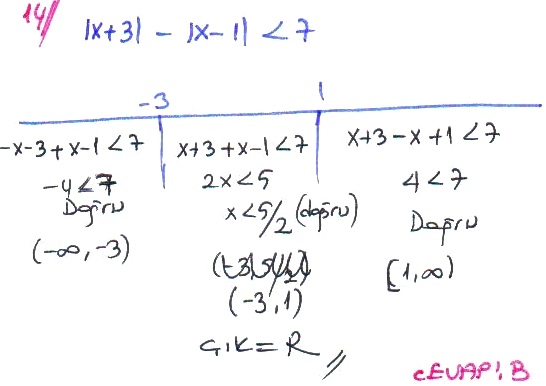 14// |x+3| - |x-1| < 7
-3 1
-x-3+x-1<7 x+3+x-1<7 x+3-x+1<7
-4<7 2x<5 4<7
Doğru x<5/2 (doğru) Doğru
(-∞,-3) [1,∞)
(-3,1)
G.K = R //
CEVAP: B